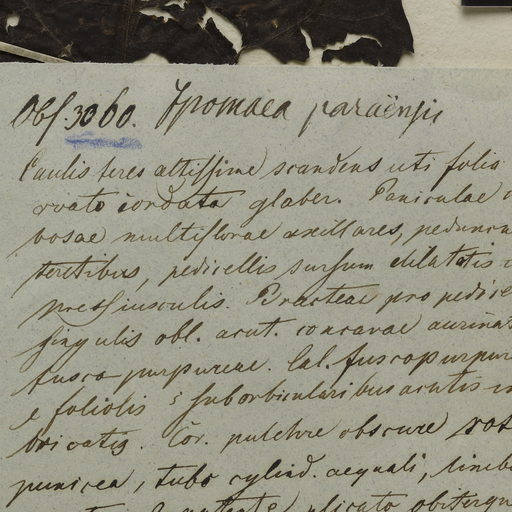 Obs. 3060. Ipomaea paraënsis
Caulis teres altissime scandens uti folia
ovato cordata glaber. Paniculae
bosae multiflorae axillares, peduncu
teretibus, pedicellis sursum dilatatis
pressiusculis. Bracteae pro pedice
singulis obl. acut. concavae
fusco purpureae. Cal. fuscopurpure
e foliolis 5 suborbicularibus acutis im
bricatis. Cor. pulchre obscure
punicea, tubo cylind. aequali, limbo
plicato